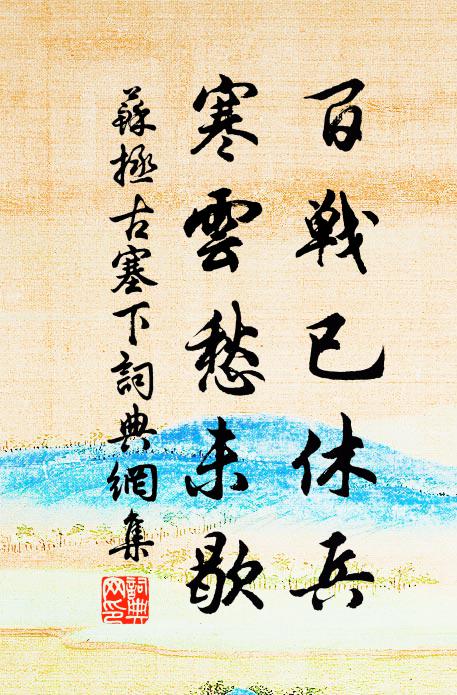 百戰已休兵
寒雲愁未歇
蘇拯古塞下詞典網集
詞典